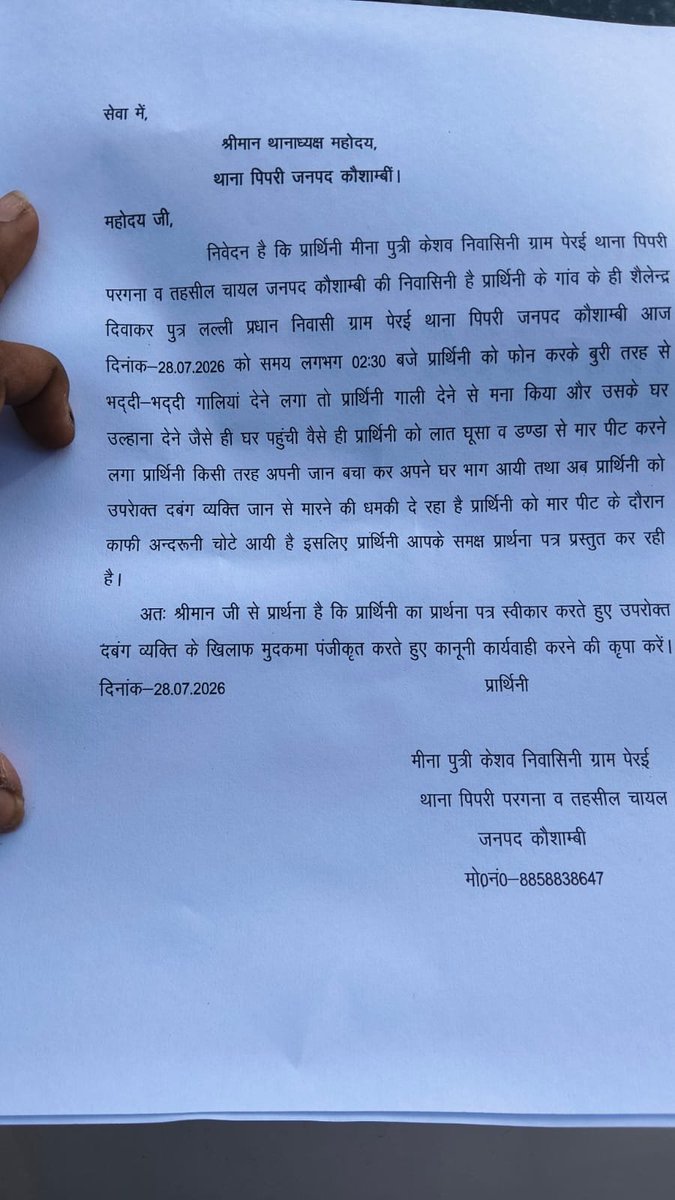 सेवा में,
श्रीमान थानाध्यक्ष महोदय,
थाना पिपरी जनपद कौशाम्बीं।
महोदय जी,
निवेदन है कि प्रार्थिनी मीना पुत्री केशव निवासिनी ग्राम पेरई थाना पिपरी
परगना व तहसील चायल जनपद कौशाम्बी की निवासिनी है प्रार्थिनी के गांव के ही शैलेन्द्र
दिवाकर पुत्र लल्ली प्रधान निवासी ग्राम पेरई थाना पिपरी जनपद कौशाम्बी आज
दिनांक–28.07.2026 को समय लगभग 02:30 बजे प्रार्थिनी को फोन करके बुरी तरह से
भद्दी–भद्दी गालियां देने लगा तो प्रार्थिनी गाली देने से मना किया और उसके घर
उल्हाना देने जैसे ही घर पहुंची वैसे ही प्रार्थिनी को लात घूसा व डण्डा से मार पीट करने
लगा प्रार्थिनी किसी तरह अपनी जान बचा कर अपने घर भाग आयी तथा अब प्रार्थिनी को
उपरोक्त दबंग व्यक्ति जान से मारने की धमकी दे रहा है प्रार्थिनी को मार पीट के दौरान
काफी अन्दरूनी चोटे आयी है इसलिए प्रार्थिनी आपके समक्ष प्रार्थना पत्र प्रस्तुत कर रही
है।
अतः श्रीमान जी से प्रार्थना है कि प्रार्थिनी का प्रार्थना पत्र स्वीकार करते हुए उपरोक्त
दबंग व्यक्ति के खिलाफ मुदकमा पंजीकृत करते हुए कानूनी कार्यवाही करने की कृपा करें।
दिनांक–28.07.2026 प्रार्थिनी
मीना पुत्री केशव निवासिनी ग्राम पेरई
थाना पिपरी परगना व तहसील चायल
जनपद कौशाम्बी
मो0नं0–8858838647